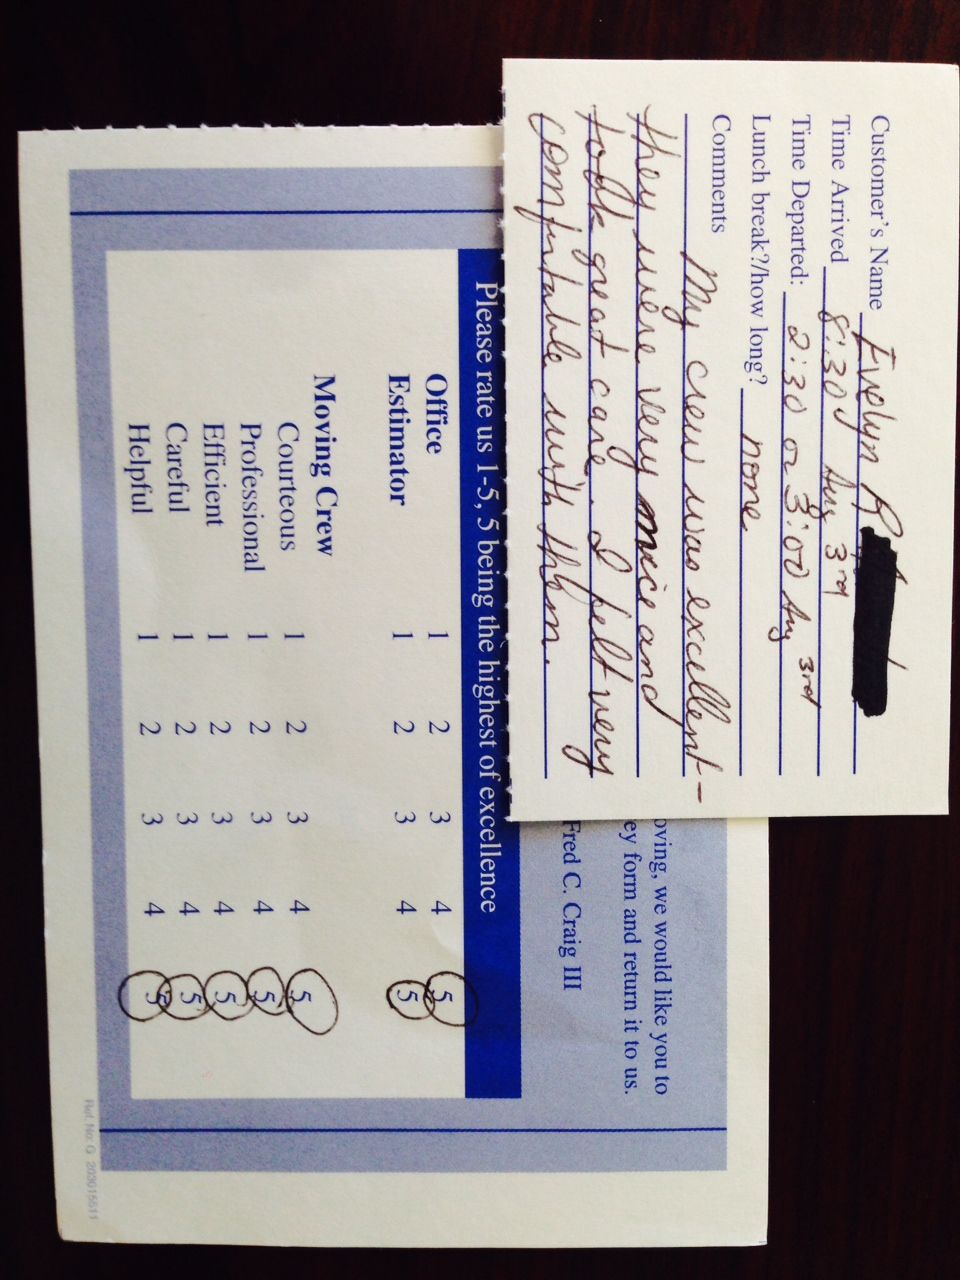 Customer's Name Evelyn R
Time Arrived 8:30 Aug 3rd
Time Departed: 2:30 or 3:00 Aug 3rd
Lunch break?/how long? none
Comments My crew was excellent -
they were very nice and
took great care. I felt very
comfortable with them.
oving, we would like you to
ey form and return it to us.
Fred C. Craig III
Please rate us 1-5, 5 being the highest of excellence
Office 1 2 3 4 5
Estimator 1 2 3 4 5
Moving Crew
Courteous 1 2 3 4 5
Professional 1 2 3 4 5
Efficient 1 2 3 4 5
Careful 1 2 3 4 5
Helpful 1 2 3 4 5
Ref. No: G